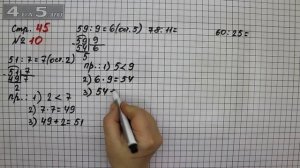 4 5
Стр. 45
№ 10
51 : 7 = 7 (ост. 2)
51 7
49 7
2
пр.: 1) 2 < 7
2) 7 · 7 = 49
3) 49 + 2 = 51
59 : 9 = 6 (ост. 5)
59 9
54 6
5
пр.: 1) 5 < 9
2) 6 · 9 = 54
3) 54 +
78 : 11 =
60 : 25 =